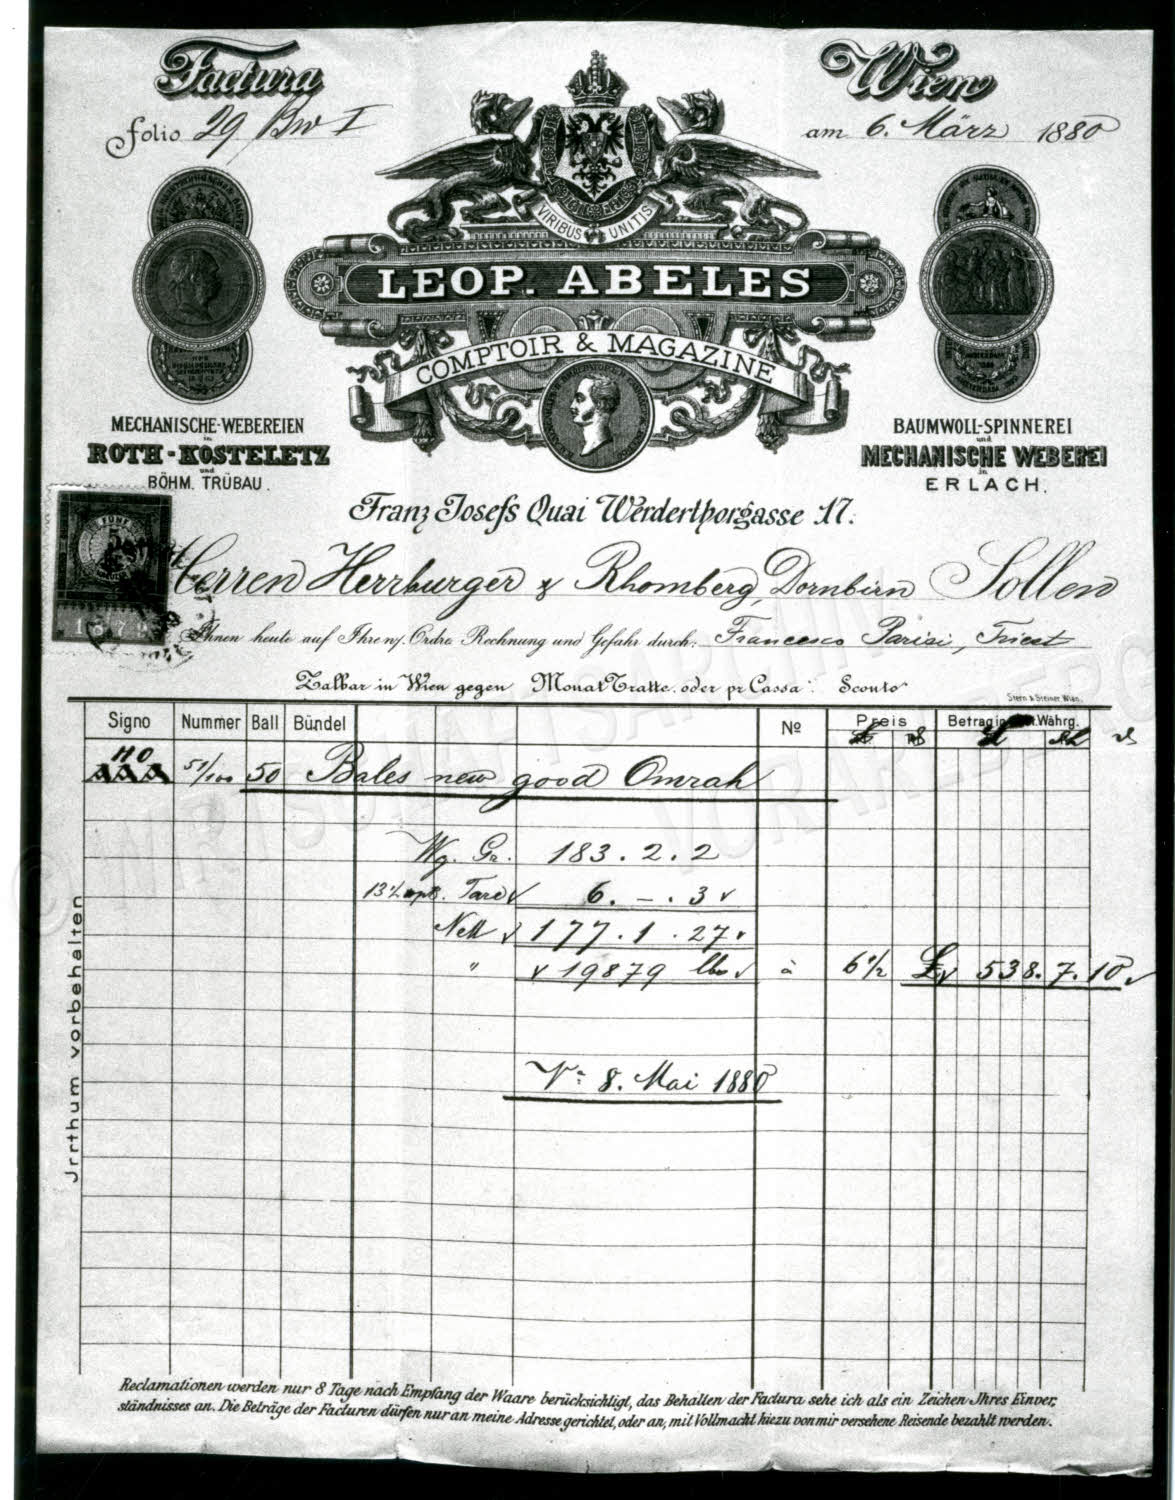 Factura
Wien
folio 29 Bw I
am 6. März 1880
VIRIBUS UNITIS
LEOP. ABELES
COMPTOIR & MAGAZINE
MECHANISCHE-WEBEREIEN
in
ROTH-KOSTELETZ
und
BÖHM. TRÜBAU.
BAUMWOLL-SPINNEREI
und
MECHANISCHE WEBEREI
in
ERLACH.
Franz Josefs Quai Werderthorgasse 17.
FÜNF
5
Herren Herrburger & Rhomberg, Dornbirn Sollen
Ihnen heute auf Ihre w. Ordre Rechnung und Gefahr durch: Francesco Parisi, Triest
Zalbar in Wien gegen Monat Tratte. oder pr Cassa: Sconto
Stern & Steiner Wien.
Signo Nummer Ball Bündel No Preis Betrag in Währg.
HO
AAA 51/100 50 Bales new good Omrah
Wg. Gr. 183.2.2
Tare 6.-.3
Nett 177.1.27
" 19879 lbs à 6 1/2 £ 538.7.10
Va: 8. Mai 1880
Jrrthum vorbehalten
Reclamationen werden nur 8 Tage nach Empfang der Waare berücksichtigt, das Behalten der Factura sehe ich als ein Zeichen Ihres Einver,
ständnisses an. Die Beträge der Facturen dürfen nur an meine Adresse gerichtet, oder an, mit Vollmacht hiezu von mir versehene Reisende bezahlt werden.
© WIRTSCHAFTSARCHIV VORARLBERG